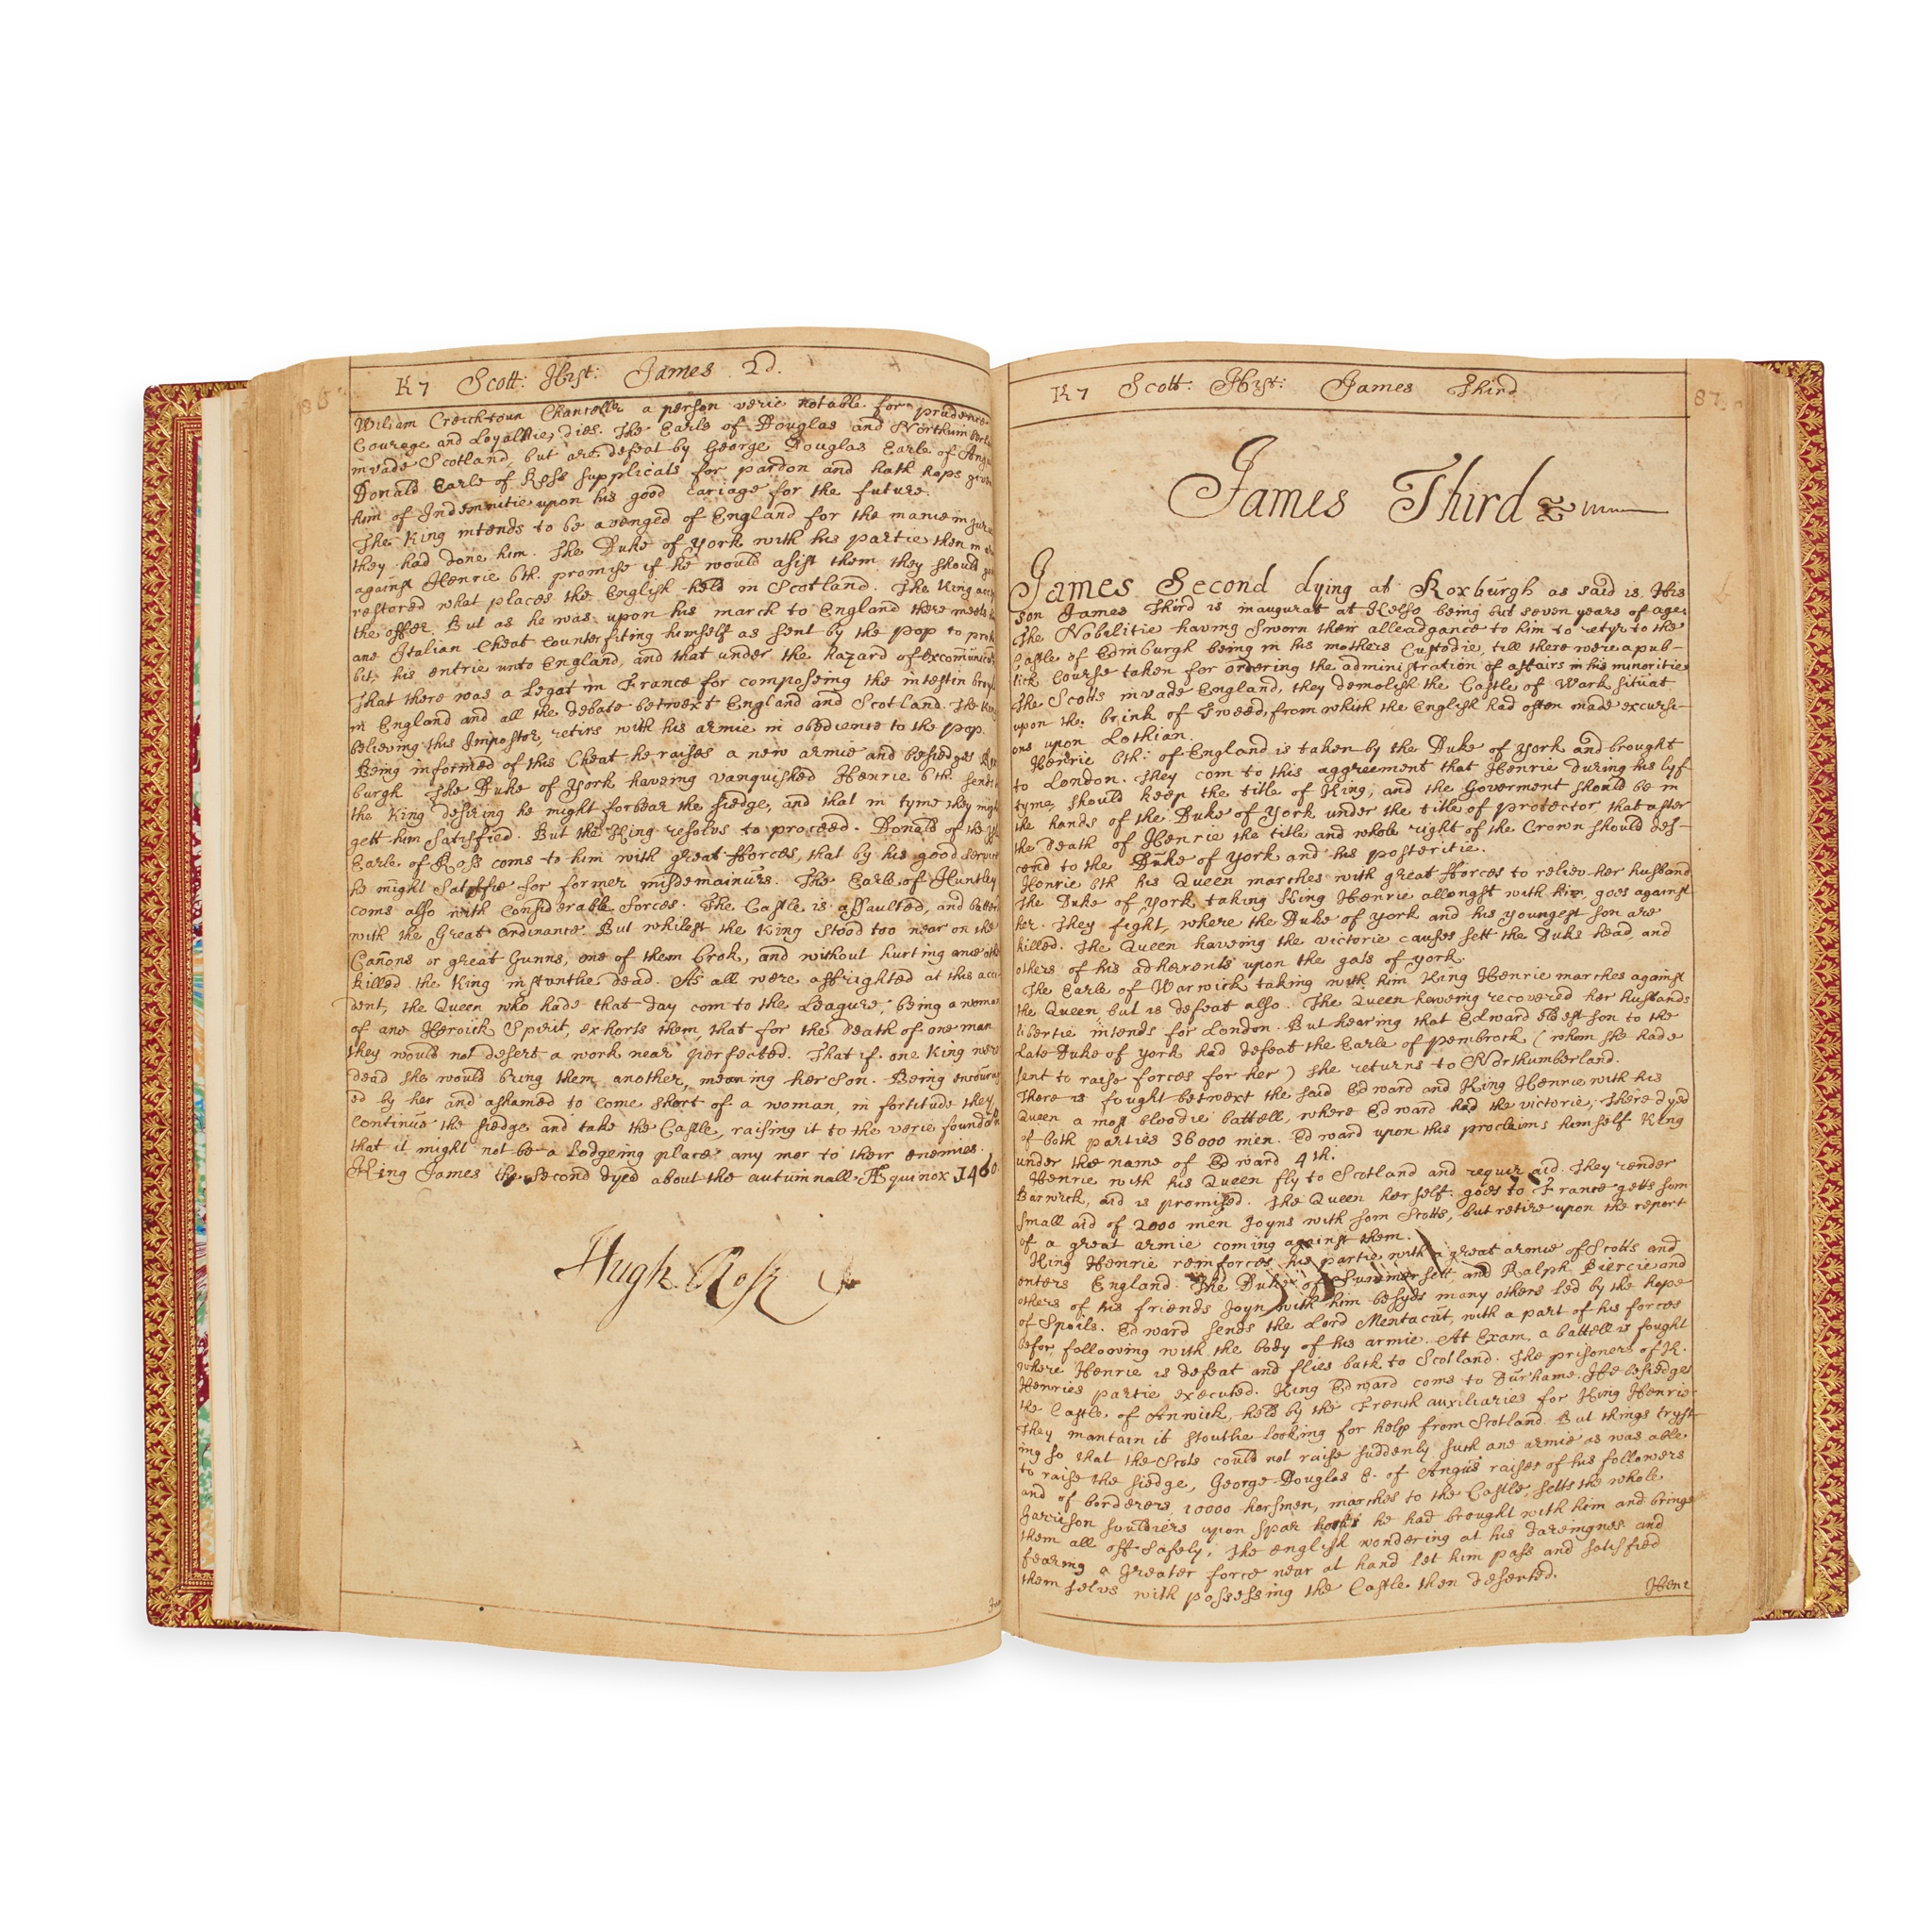 K7 Scott: Hist: James 2d.
Wiliam Creichtoun Chancellr a person verie notable for prudence
Courage and Loyaltie, dies. The Earls of Douglas and
invade Scotland, but are defeat by George Douglas Earle of
Donald Earle of Ross supplicats for pardon and hath hops given
him of Indemnitie upon his good cariage for the future.
The King intends to be avenged of England for the manie
they had done him. The Duke of York with his partie then in
against Henrie 6th. promise if he would asist them they should
restored what places the English held in Scotland. The King
the offer. But as he was upon his march to England there meets
ane Italian Cheat counterfiting himself as sent by the pop to
bit his entrie unto England, and that under the hazard of
That there was a Legat in France for composeing the intestin
in England and all the debate betwext England and Scotland. The King
believing this Impostor, retirs with his armie in obedience to the pop.
Being informed of this Cheat he raises a new armie and besiedges
burgh. The Duke of York haveing vanquished Henrie 6th. sends
the King desiring he might forbear the siedge, and that in tyme they
gett him satisfied. But the King resolvs to proceed. Donald of the
Earle of Ross coms to him with great Forces, that by his good
he might satisfie for former misdemainurs. The Earle of Huntley
coms also with considerable forces. The Castle is assaulted, and
with the Great Ordinance. But whilest the King stood too near on the
Canons or great Gunns, one of them brok, and without hurting anie
killed the King instantlie dead. As all were affrighted at this acci
dent, the Queen who hade that day com to the Leagure, being a woman
of ane Heroick Spirit, exhorts them, that for the death of one man
they would not desert a work near perfected. That if one King were
dead she would bring them another, meaning her son. Being encourag
ed by her and ashamed to come short of a woman, in fortitude they
continue the siedge and take the Castle, raising it to the verie
that it might not be a Lodgeing place any mor to their enemies.
King James the second dyed about the autumnall Æquinox 1460
Hugh Ross
K7 Scott: Hist: James Third
87
James Third
James Second dying at Roxburgh as said is. His
son James Third is inaugurat at Kelso being but seven years of age.
The Nobilitie having sworn their alleadgance to him to retyr to the
Castle of Edinburgh being in his mothers Custodie, till there were a pub-
lick course taken for ordering the administration of affairs in his minoritie
The Scotts invade England, they demolish the Castle of Wark situat
upon the brink of Tweed, from which the English had often made excursi-
ons upon Lothian.
Henrie 6th: of England is taken by the Duke of York and brought
to London. They com to this aggreement that Henrie during his lyf
tyme should keep the title of King, and the Goverment should be in
the hands of the Duke of York under the title of protector that after
the death of Henrie the title and whole right of the Crown should des-
cend to the Duke of York and his posteritie.
Henrie 6th his Queen marches with great Forces to reliev her husband
The Duke of York taking King Henrie allongst with him, goes against
her. They fight, where the Duke of York and his youngest son are
killed. The Queen haveing the victorie causes sett the Duks head, and
others of his adherents upon the gats of York.
The Earle of Warwick taking with him King Henrie marches against
the Queen but is defeat also. The Queen haveing recovered her husbands
libertie intends for London. But hearing that Edward eldest son to the
Late Duke of York had defeat the Earle of Pembrock (whom she hade
sent to raise forces for her) she returns to Northumberland.
There is fought betwext the said Edward and King Henrie with his
Queen a most bloodie battell, where Edward had the victorie, There dyed
of both parties 36000 men. Edward upon this proclaims himself King
under the name of Edward 4th.
Henrie with his Queen fly to Scotland and requir aid. They render
Barwick, aid is promised. The Queen herself goes to France getts som
small aid of 2000 men Joyns with som Scotts, but retire upon the report
of a great armie coming against them.
King Henrie reinforces his partie with a great armie of Scotts and
enters England. The Duke of Summersett and Ralph Piercie and
others of his friends Joyn with him besyds many others led by the hope
of Spoils. Edward sends the Lord Mentacut, with a part of his forces
befor following with the body of his armie. At Exam a battell is fought
where Henrie is defeat and flies back to Scotland. The prisoners of K.
Henries partie executed. King Edward coms to Durhame. He besiedges
the Castle of Anwick, held by the French auxiliaries for King Henrie
They mantain it stoutlie looking for help from Scotland. But things tryst-
ing so that the Scots could not raise suddenly such ane armie as was able
to raise the siedge, George Douglas E. of Angus raises of his followers
and of borderers 10000 horsmen, marches to the Castle, setts the whole
Garrison souldiers upon spar hors he had brought with him and brings
them all off safely; The english wondering at his dareingnes and
fearing a greater force near at hand let him pass and satisfied
themselvs with possessing the Castle then deserted.
Henr